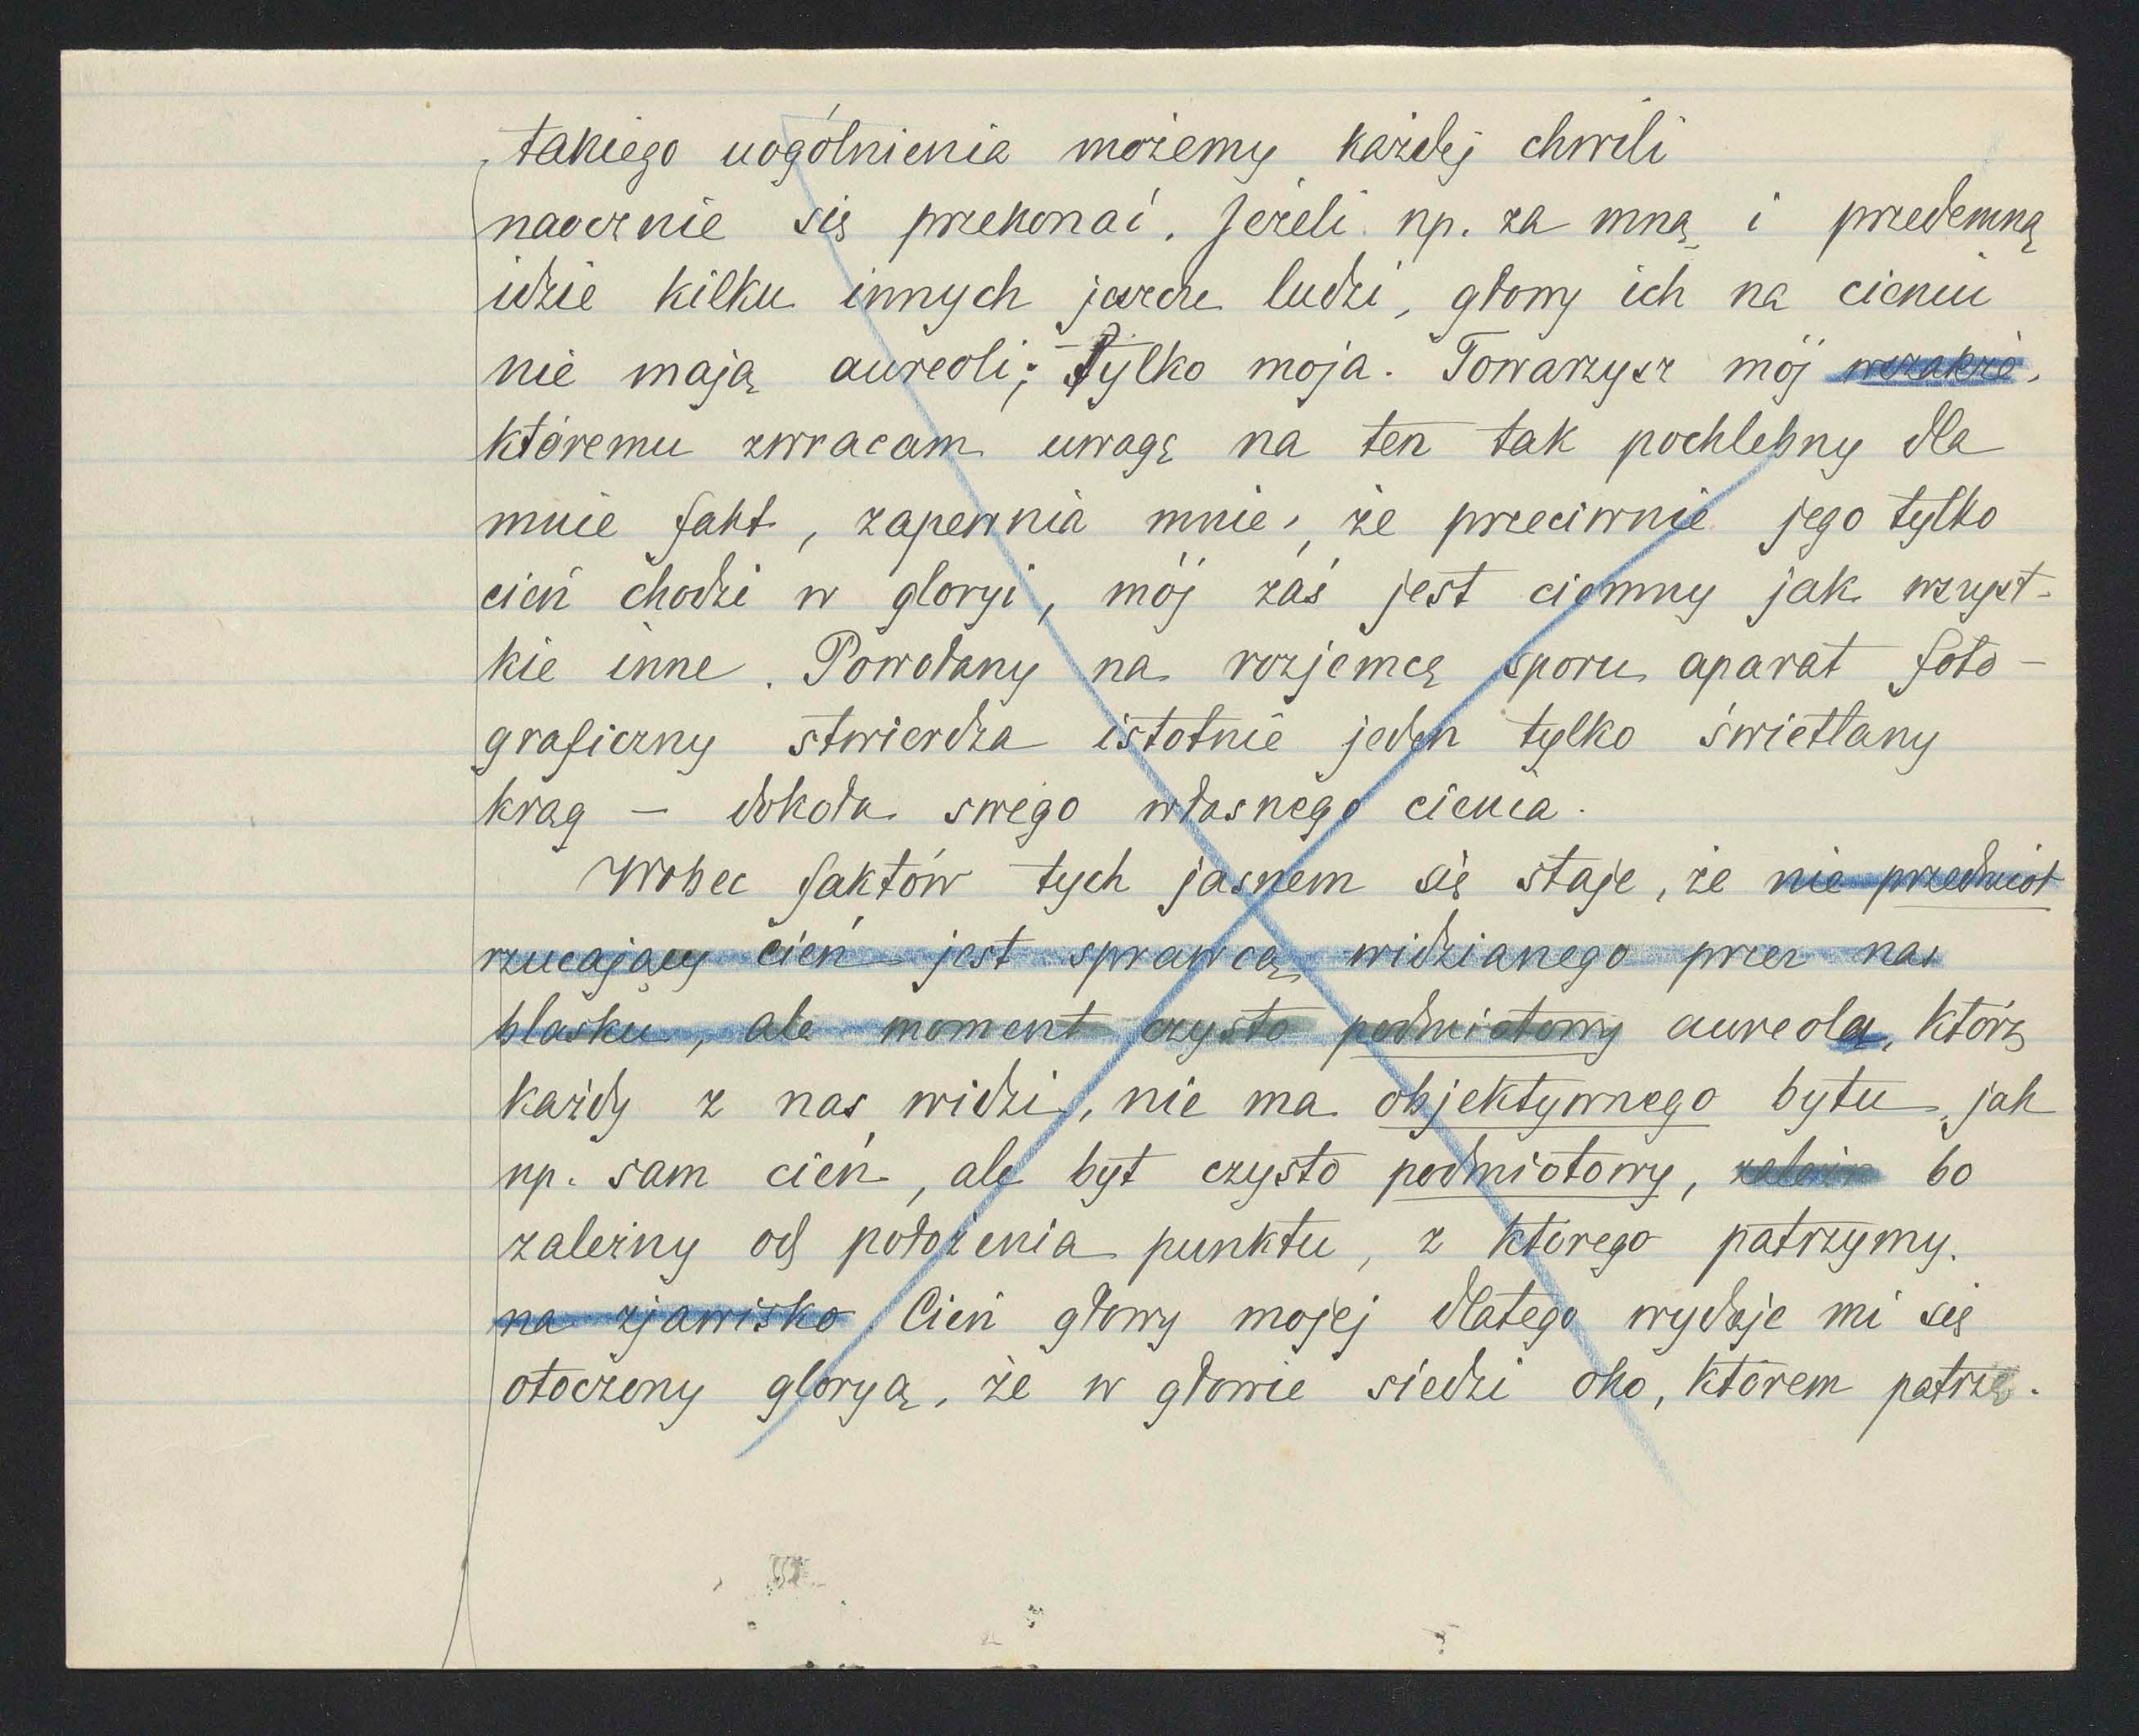 takiego uogólnienia możemy każdej chwili
naocznie się przekonać. Jeżeli np. za mną i przedemną
idzie kilku innych jeszcze ludzi, głowy ich na cieniu
nie mają aureoli; tylko moja. Towarzysz mój wszakże,
któremu zwracam uwagę na ten tak pochlebny dla
mnie fakt, zapewnia mnie, że przeciwnie jego tylko
cień chodzi w gloryi, mój zaś jest ciemny jak wszyst-
kie inne. Powołany na rozjemcę sporu aparat foto-
graficzny stwierdza istotnie jeden tylko świetlany
krąg – dokoła swego własnego cienia.
Wobec faktów tych jasnem się staje, że nie przedmiot
rzucający cień jest sprawcą widzianego przez nas
blasku, ale moment czysto podmiotowy aureola, którą
każdy z nas widzi, nie ma objektywnego bytu, jak
np. sam cień, ale byt czysto podmiotowy, zależn bo
zależny od położenia punktu, z którego patrzymy.
na zjawisko. Cień głowy mojej dlatego wydaje mi się
otoczony gloryą, że w głowie siedzi oko, którem patrzę.